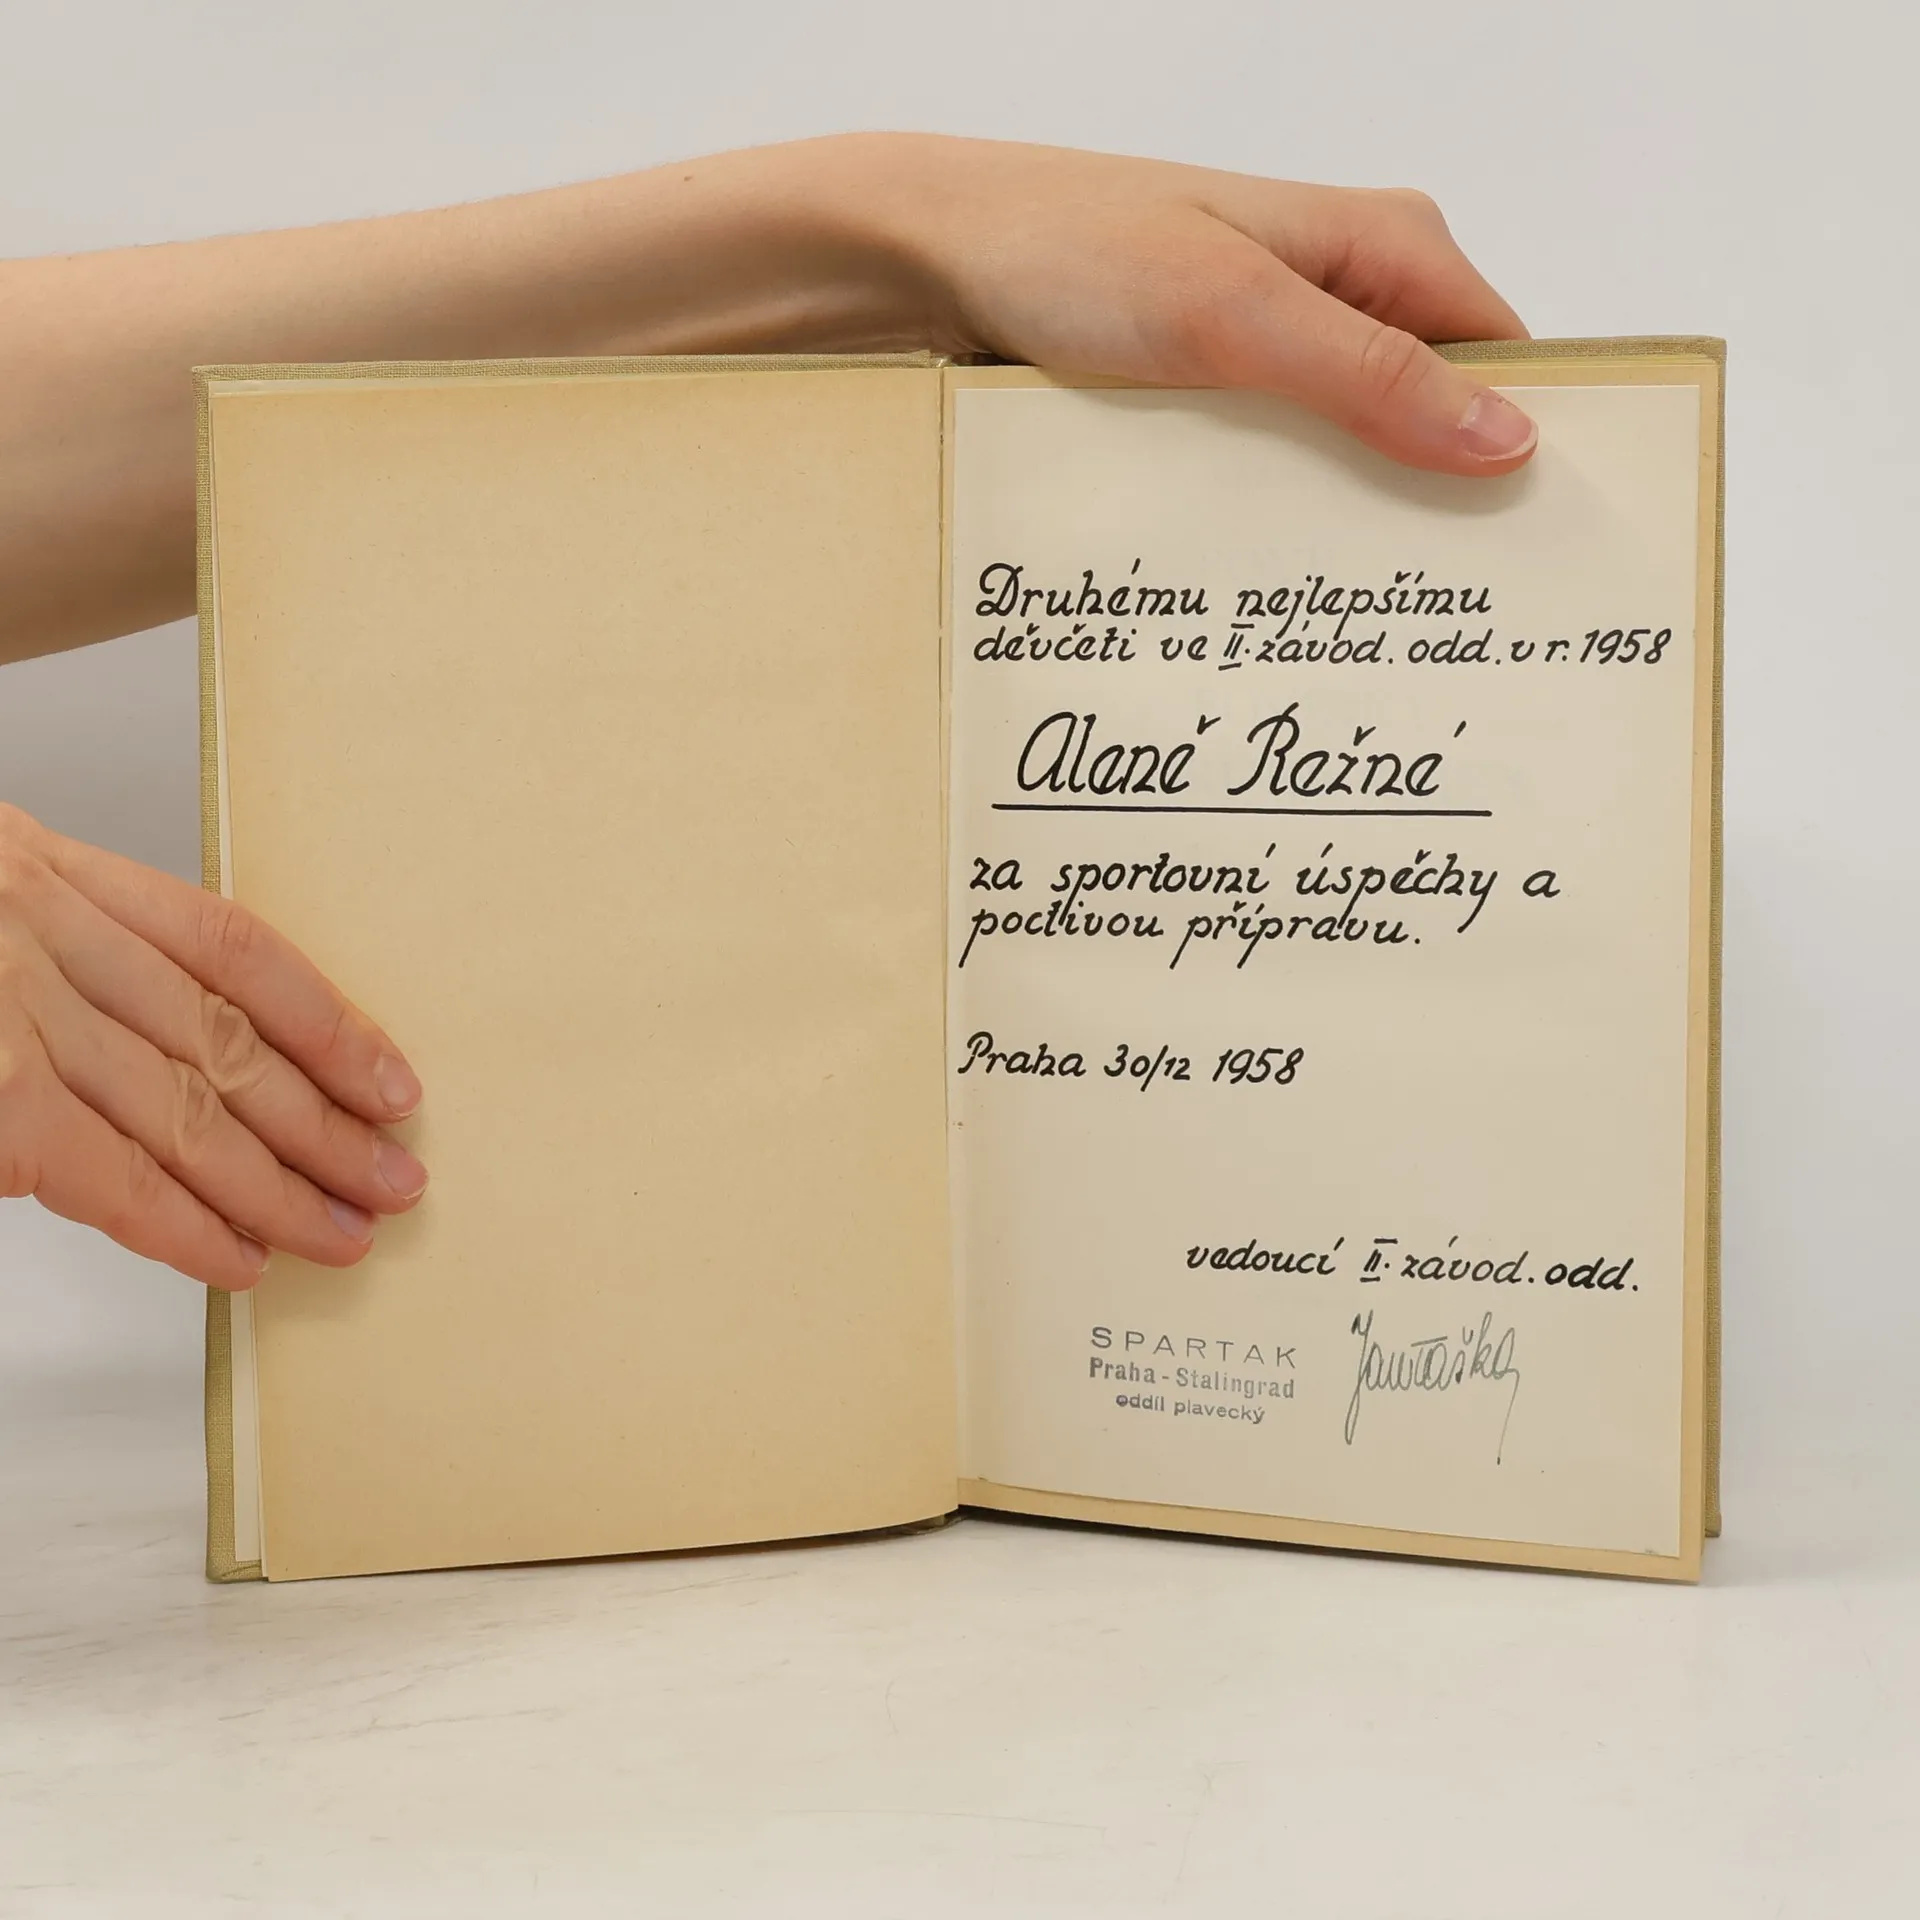 Druhému nejlepšímu
děvčeti ve II. závod. odd. v r. 1958
Aleně Režné
za sportovní úspěchy a
poctivou přípravu.
Praha 30/12 1958
vedoucí II. závod. odd.
SPARTAK
Praha-Stalingrad
oddíl plavecký